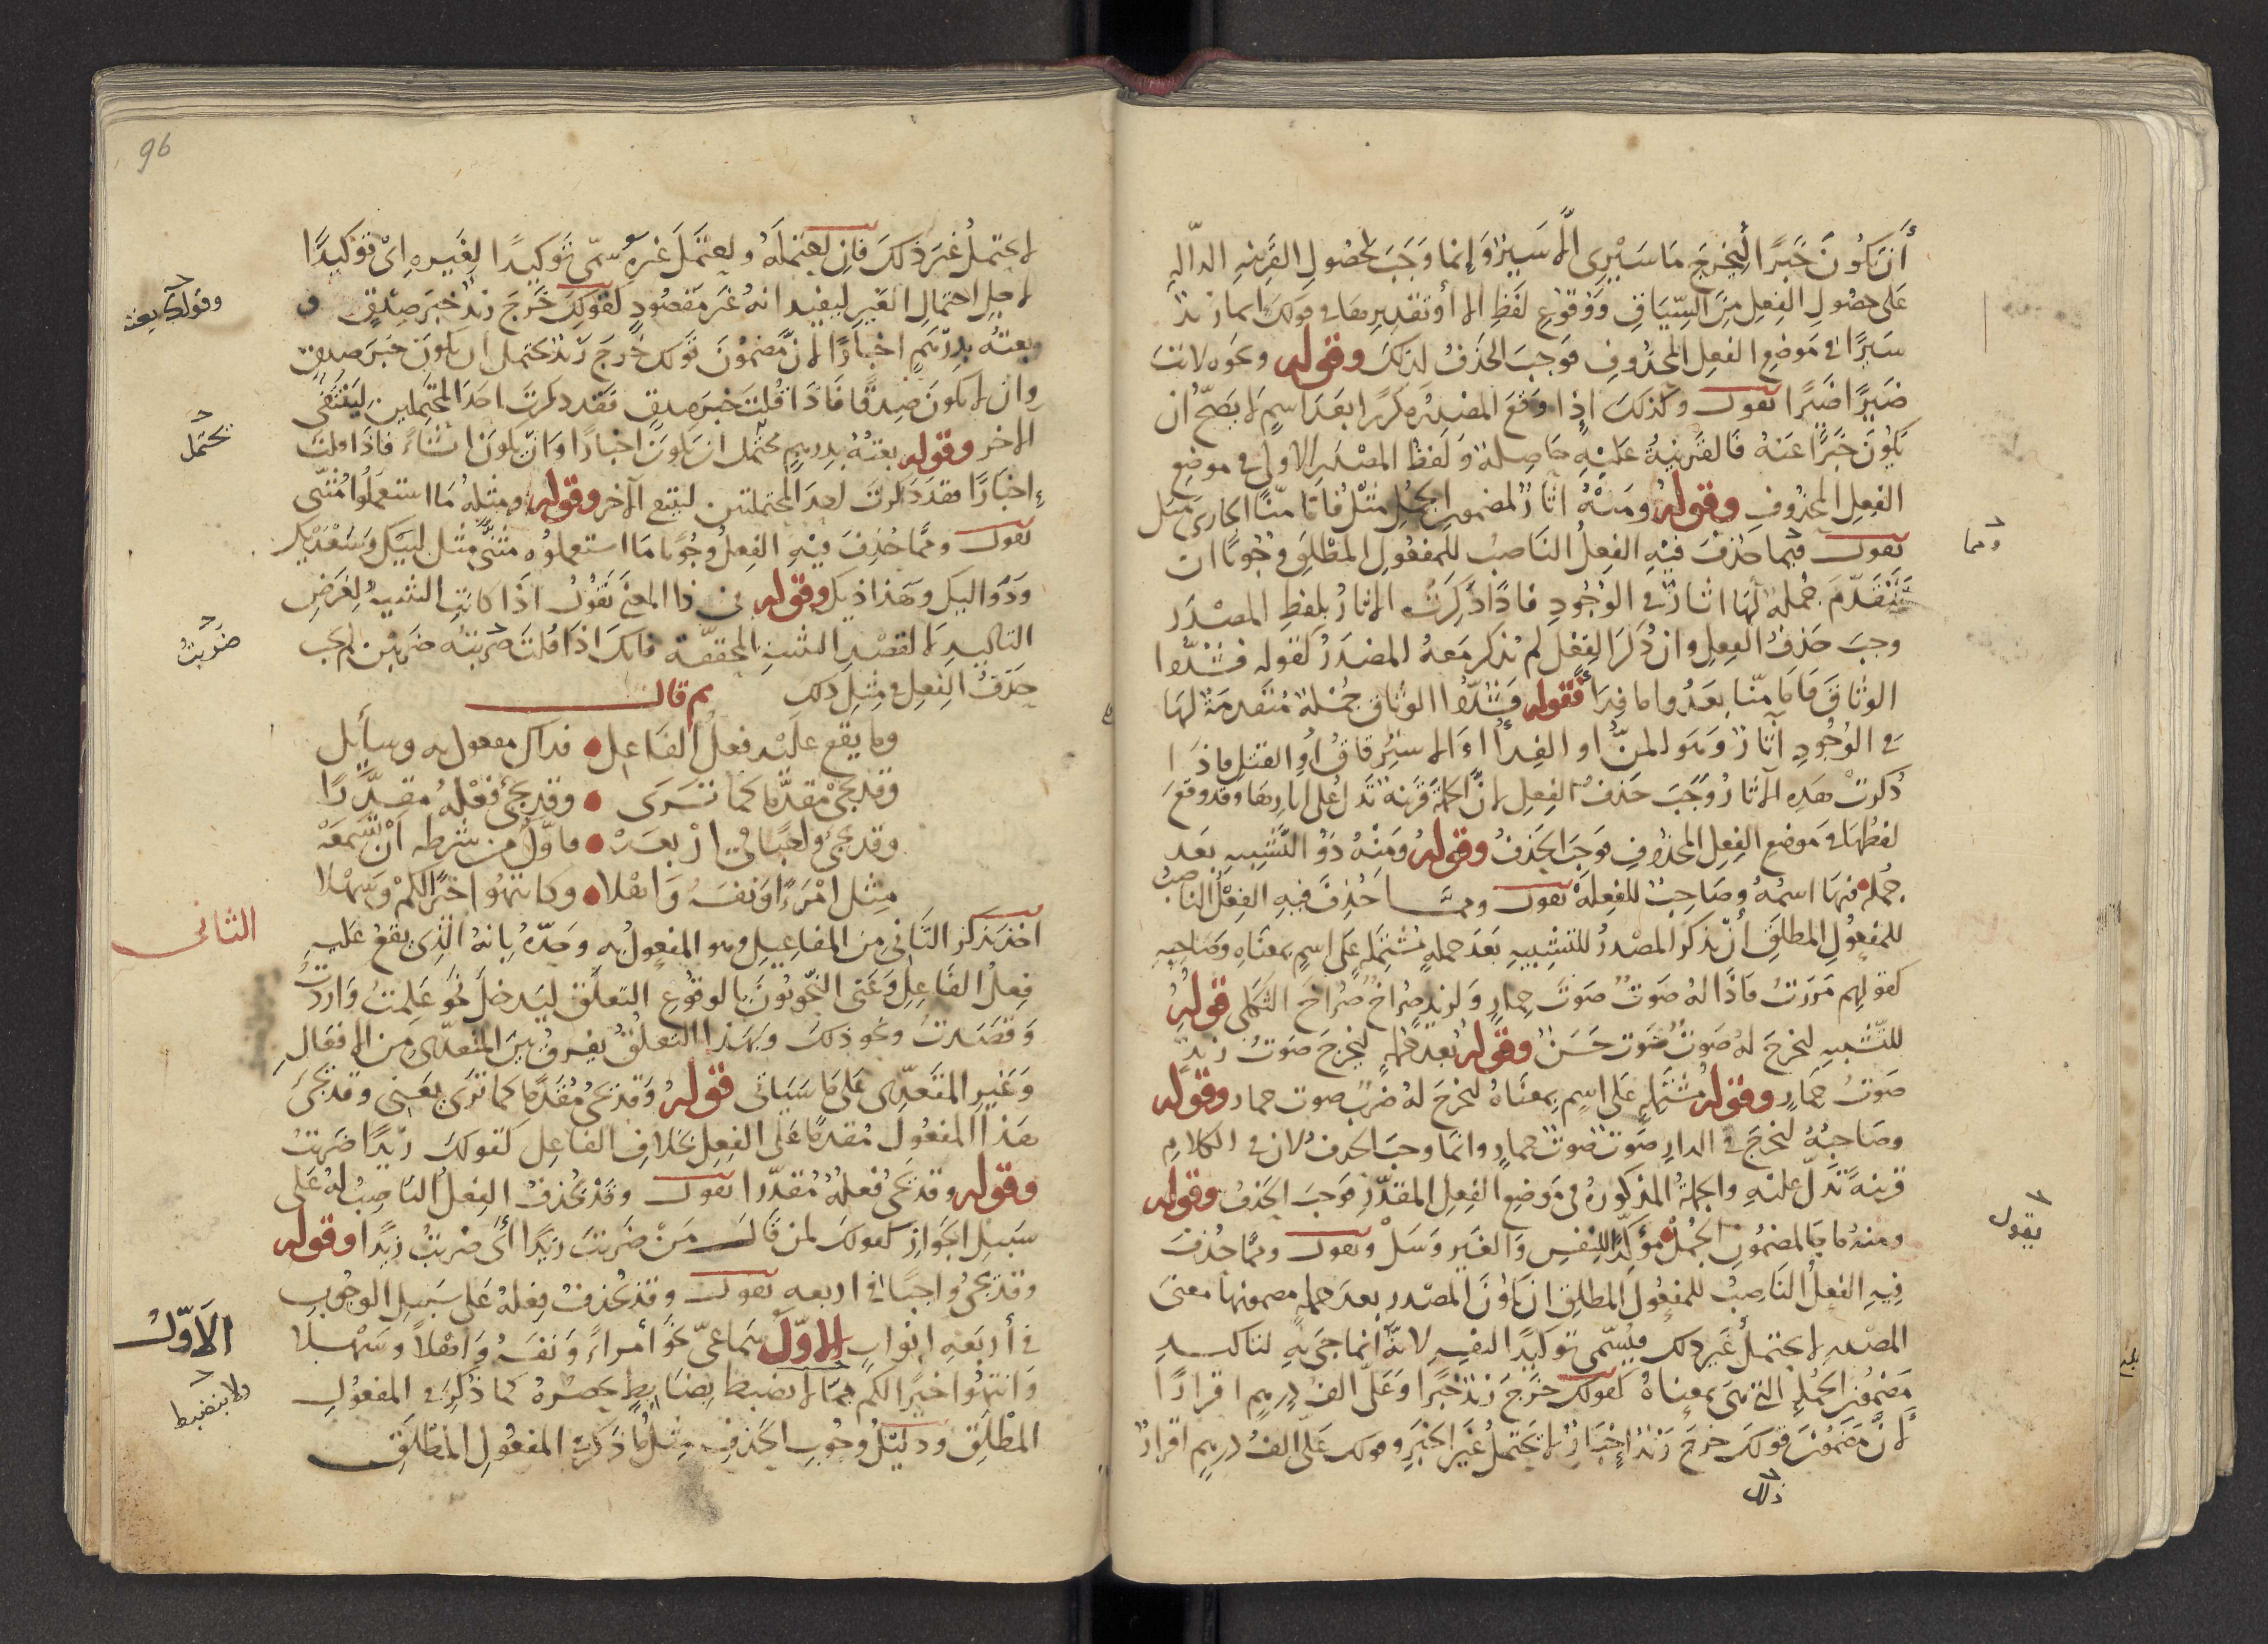 أن يكون خبرًا ليخرج ما سيري إلا سير وإنما وجب لحصول القرينه الداله
على حصول الفعل من السياق ووقوع لفظ الا أو تقديرها في قولك انما زيد
سيرًا في موضع الفعل المحذوف فوجب الحذف لذلك وقوله ونحوه لا تنت
ضيرًا ضيرًا نقول وكذلك إذا وقع المصدر مكررا بعد اسم لا يصح أن
يكون خبرًا عنه فالقرينة عليه حاصلة ولفظ المصدر الاول في موضع
الفعل المحذوف وقوله ومنه اثار لمضمون الجمل مثل فاما منا الجاري مثل
نقول فيما حذف فيه الفعل الناصب للمفعول المطلق وجوبًا ان
ومما
تتقدم جملة لها اثار في الوجود فاذا ذكرت الاثار بلفظ المصدر
وجب حذف الفعل وان ذكر الفعل لم يذكر معه المصدر كقوله فشدوا
الوثاق فاما منا بعد واما فدا فقوله فشدوا الوثاق جملة متقدمة لها
في الوجود آثار وهو المن او الفدا او الاسترقاق أو القتل فاذا
ذكرت هذه الآثار وجب حذف الفعل لان الجملة قرينه تدل على اثارها وقد وقع
لفظها في موضع الفعل المحذوف فوجب الحذف وقوله ومنه ذو التشبيه بعد
جمله فيها اسمه وصاحب للفعله نقول ومما حذف فيه الفعل الناصب
للمفعول المطلق أن يذكر المصدر للتشبيه بعد جمله مشتمله على اسم بمعناه وصاحبه
كقولهم مررت فاذا له صوت صوت حمار ولزيد صراخ صراخ الثكلى قوله
للتشبيه ليخرج له صوت صوت حسن وقوله بعد جمله ليخرج صوت زيد
صوت حمار وقوله مشتمله على اسم بمعناه ليخرج له ضرب صوت حمار وقوله
وصاحبه ليخرج في الدار صوت صوت حمار وانما وجب الحذف لان في الكلام
قرينة تدل عليه والجملة المذكوره في موضع الفعل المقدر فوجب الحذف وقوله
يقول
ومنه ما جا لمضمون الجمل مؤكدا للنفس والغير وسل ونقول ومما حذف
فيه الفعل الناصب للمفعول المطلق ان يكون المصدر بعد جمله مضمونها معنى
المصدر لا يحتمل غير ذلك فيسمى توكيدًا لنفسه لانه انما جي به لتاكيد
مضمون الجمله التي هي بمعناه كقولك خرج زيد خبرا وعلي الف درهم اقرارًا
لأن مضمون قولك خرج زيد إخبار لا يحتمل غير الخبر وقولك علي الف درهم اقرار
ذلك
96
لا يحتمل غير ذلك فان يحتمله ويحتمل غيره سمي توكيدا لغيره اي توكيدًا
لاجل احتمال الغير ليفيد انه غير مقصود كقولك خرج زيد خبر صدق و
وقولك بعته
وبعته بدرهم اخبارًا لان مضمون قولك خرج زيد يحتمل ان يكون خبر صدق
وان لا يكون صدقًا فاذا قلت خبر صدق فقد ذكرت احد المحتملين لينتفي
يحتمل
الاخر وقوله بعته بدرهم محتمل ان يكون اخبارًا وان يكون انشاء فاذا قلت
إخبارًا فقد ذكرت احد المحتملين لينتفي الآخر وقوله ومثله ما استعملوا مثنى
نقول ومما حذف فيه الفعل وجوبًا ما استعملوه مثنى مثل لبيك وسعديك
ودواليك وهذاذيك وقوله في ذا المعنى نقول اذا كانت التثنيه لغرض
التاكيد لا لقصد التثنيه المحققة فانك اذا قلت ضربته ضربتين لم يجب
ضربت
حذف الفعل في مثل ذلك ثم قال
وما يقع عليه فعل الفاعل فذاك مفعول به وسايل
وقد يجي مقدما كما ترى وقد يجي فعله مقدرا
وقد يجي واجبا في اربعه فاول من شرطه أن تسمعه
مثل امرءا ونفسه واهلا وكانتهوا خيرا لكم وسهلا
اخذ يذكر الثاني من المفاعيل وهو المفعول به وحده بانه الذي يقع عليه
الثانى
فعل الفاعل وعنى النحويون بالوقوع التعلق ليدخل نحو علمت واردت
وقصدت ونحو ذلك وبهذا التعلق يفرق بين المتعدي من الافعال
وغير المتعدي على ما سياتى فقوله وقد يجي مقدما كما ترى يعني وقد يجي
هذا المفعول مقدما على الفعل بخلاف الفاعل كقولك زيدا ضربت
وقوله وقد يجي فعله مقدرا نقول وقد يحذف الفعل الناصب له على
سبيل الجواز كقولك لمن قال من ضربت زيدا أي ضربت زيدا وقوله
وقد يجي واجبًا في اربعه نقول وقد يحذف فعله على سبيل الوجوب
في أربعة ابواب الاول سماعي نحو أمراء ونفسه وأهلاً وسهلا
الاول
وانتهوا خيرًا لكم مما لا يضبط بضابط يحصره كما ذكر في المفعول
ولا ينضبط
المطلق ودليل وجوب الحذف مثل ما ذكر في المفعول المطلق